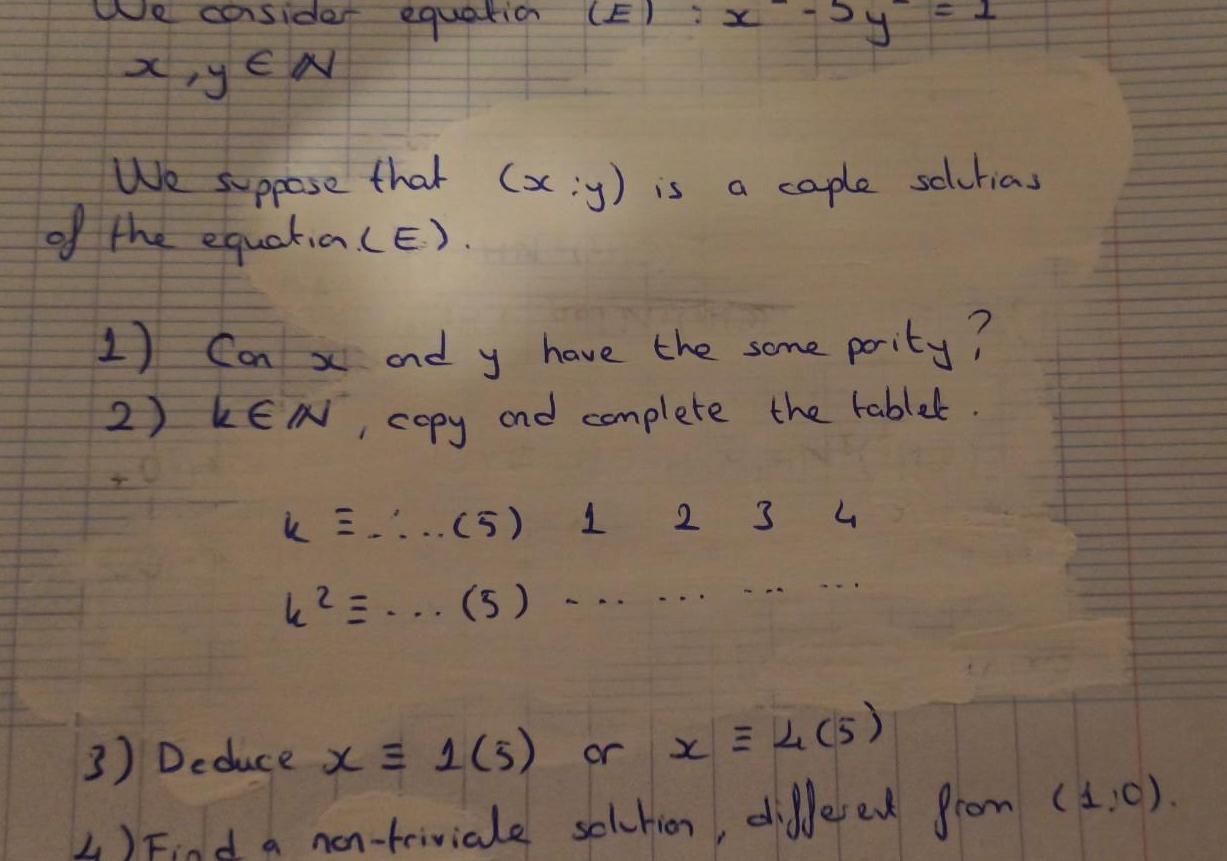 We consider equation (E) : x² - 5y² = 1
x, y ∈ ℕ
We suppose that (x ; y) is a cople solutions
of the equation (E).
1) Can x and y have the same parity?
2) k ∈ ℕ, copy and complete the tablet.
k ≡ ..... (5) 1 2 3 4
k² ≡ .... (5) .... ... ... ...
3) Deduce x ≡ 1(5) or x ≡ 4(5)
4) Find a non-triviale solution, different from (1;0).